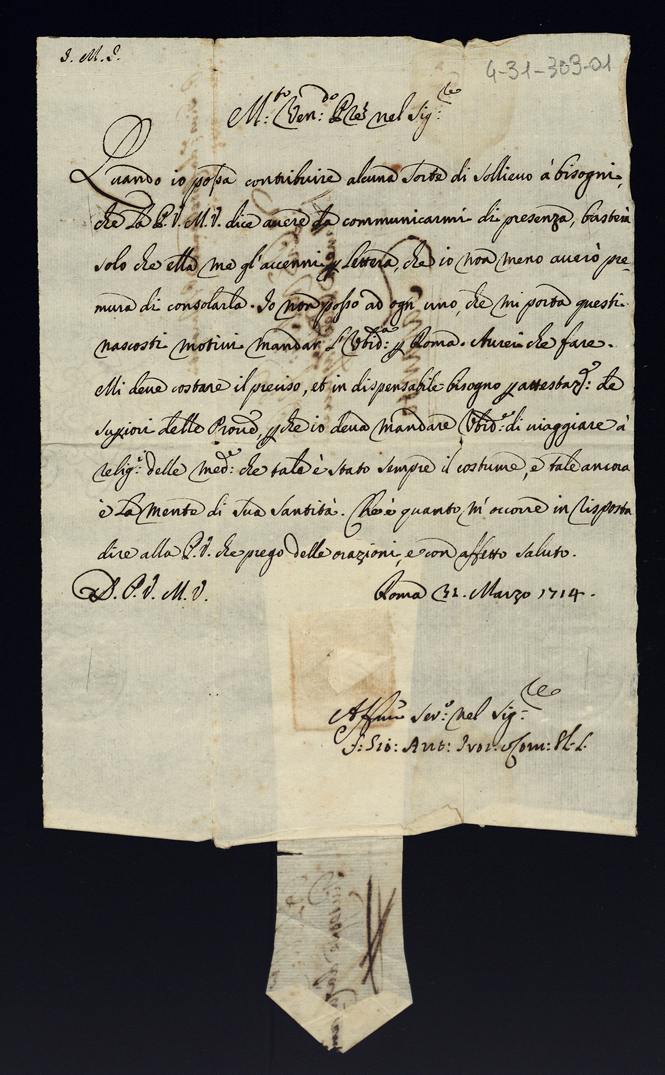 J. M. J.
4-31-303-01
M.to Ven.do P.re nel Sig.re
Quando io possa contribuire alcuna sorte di sollievo à bisogni,
che la P. V. M. V. dice avere da communicarmi di presenza, basterà
solo che ella me gl'accenni p lettera, che io non meno averò pre-
mura di consolarla. Io non posso ad ogn'uno, che mi porta questi
nascosti motivi mandar l'Ubid.a p Roma. Aurei che fare.
Mi deve costare il preciso, et in dispensabile bisogno p attestaz.e de
Supiori delle Prov.e, p che io deva mandare Ubid.e di viaggiare à
relig.i delle med.e che tale è stato sempre il costume, e tale ancora
è la mente di Sua Santità. Che è quanto m'occorre in risposta
dire alla P. V. che prego delle orazioni, e con affetto saluto.
D. P. V. M. V.
Roma 31. Marzo 1714.
Aff.mo Ser.o nel Sig.re
F. Gio: Ant: